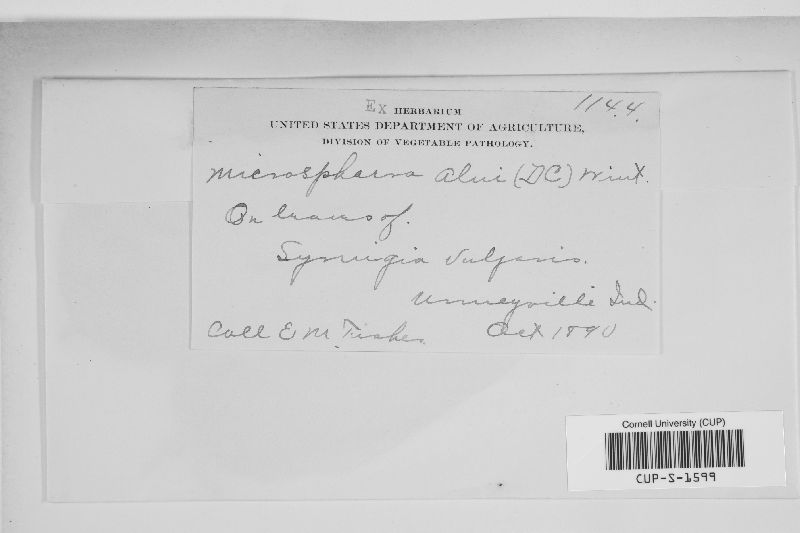 1144.
Ex HERBARIUM
UNITED STATES DEPARTMENT OF AGRICULTURE,
DIVISION OF VEGETABLE PATHOLOGY.
Microsphaera alni (DC) Wint.
On leaves of.
Syringia vulgaris.
Urmeyville Ind.
Coll E M Fisher. Oct 1890
Cornell University (CUP)
CUP-S-1599